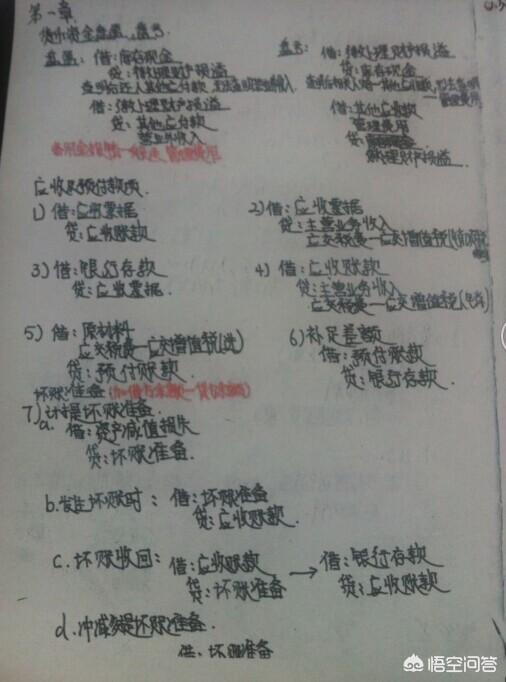 第一章
货币资金盘盈、盘亏
盘盈：借：库存现金
贷：待处理财产损溢
借：待处理财产损溢
贷：其他应付款
营业外收入
盘亏：借：待处理财产损溢
贷：库存现金
借：其他应收款
管理费用
贷：
待处理财产损溢
应收及预付款项
1）借：应收票据
贷：应收账款
2）借：应收票据
贷：主营业务收入
应交税费—应交增值税(销项税
3）借：银行存款
贷：应收票据
4）借：应收账款
贷：主营业务收入
应交税费—应交增值税(
5）借：原材料
应交税费—应交增值税(进)
贷：预付账款
6）补足差额
借：预付账款
贷：银行存款
坏账准备
7）计提坏账准备
a. 借：资产减值损失
贷：坏账准备
b.发生坏账时：借：坏账准备
贷：应收账款
c.坏账收回：借：应收账款 → 借：银行存款
贷：坏账准备 贷：应收账款
d.冲减多提坏账准备
借：坏账准备
悟空问答